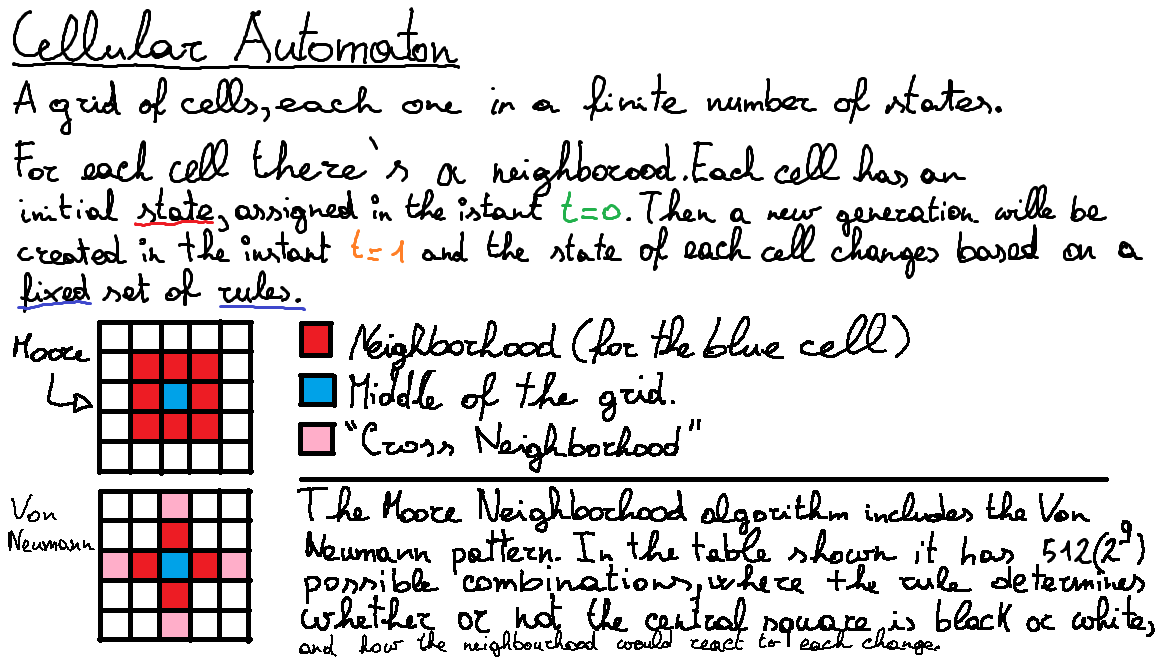 Cellular Automaton
A grid of cells, each one in a finite number of states.
For each cell there's a neighborood. Each cell has an
initial state, assigned in the istant t=0. Then a new generation wille be
created in the instant t=1 and the state of each cell changes based on a
fixed set of rules.
Moore
Neighborhood (for the blue cell)
Middle of the grid.
"Cross Neighborhood"
Von
Neumann
The Moore Neighborhood algorithm includes the Von
Neumann pattern. In the table shown it has 512 (2^9)
possible combinations, where the rule determines
whether or not the central square is black or white,
and how the neighbourhood would react to each change.